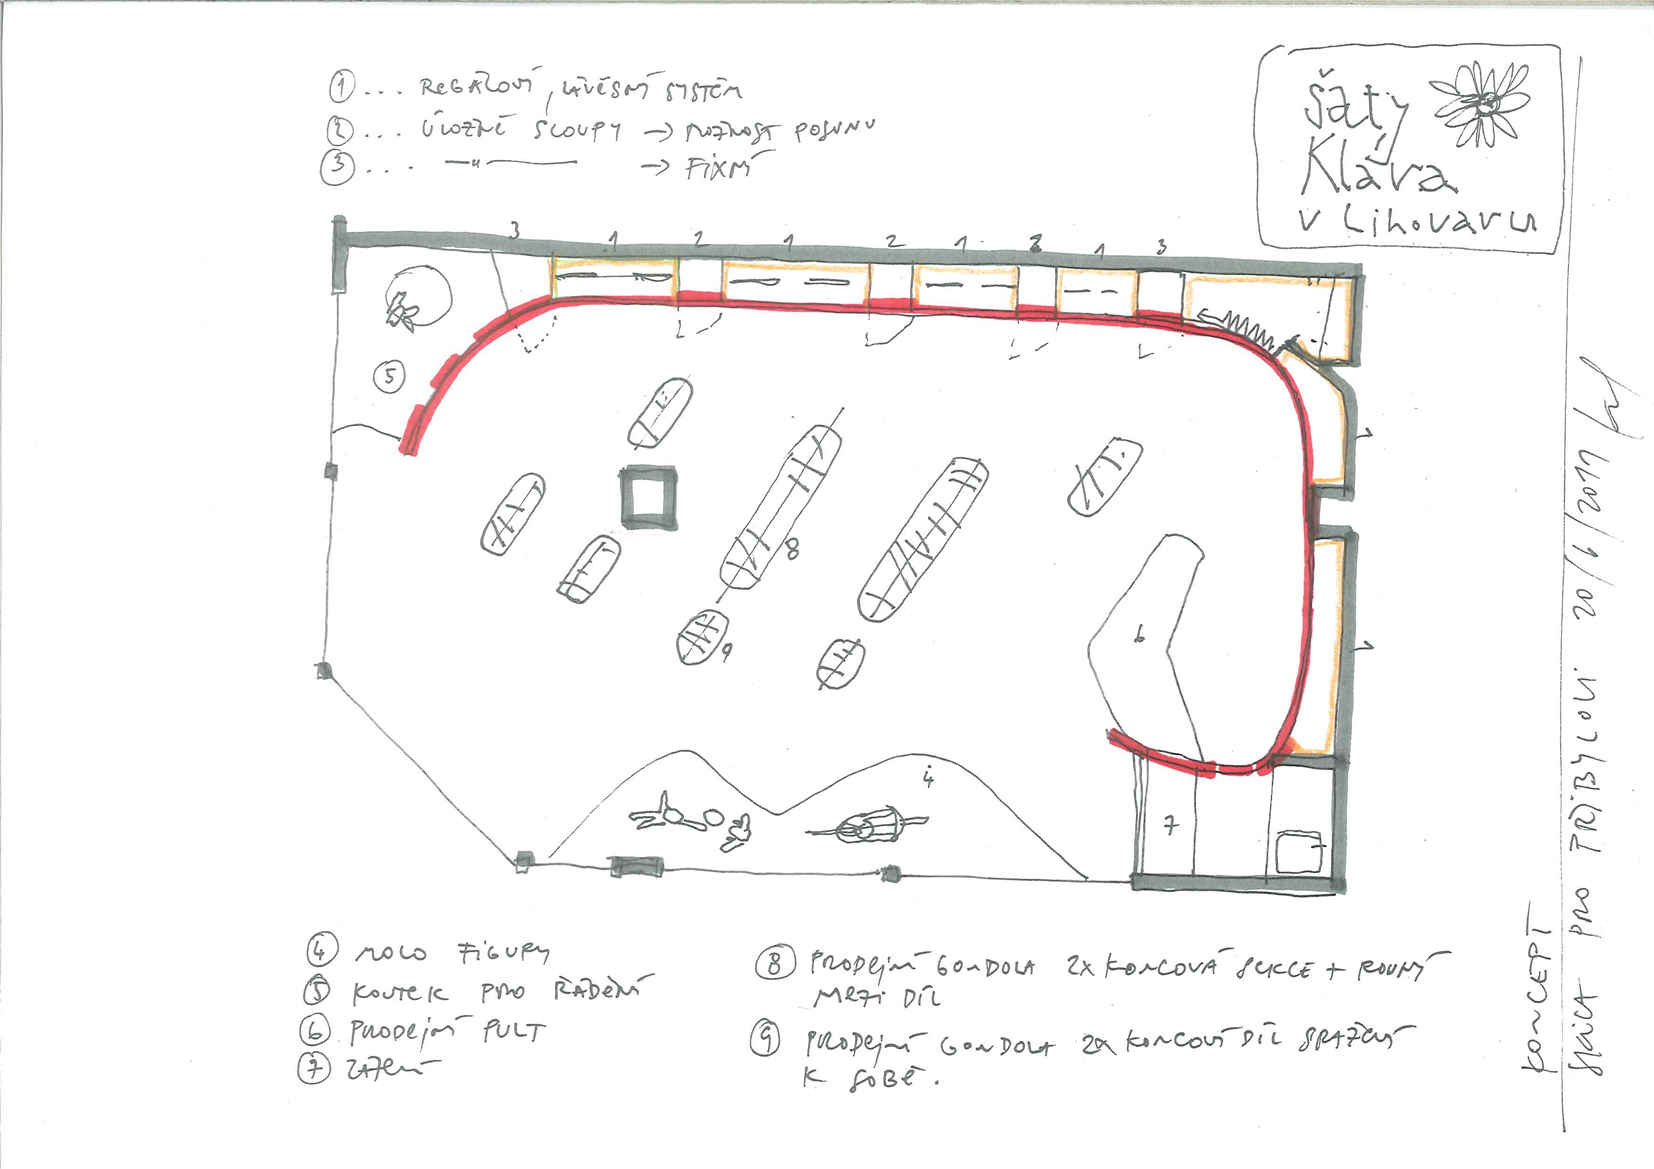 1 ... REGÁLOVÝ, ZÁVĚSNÝ SYSTÉM
2 ... ÚLOŽNÉ SLOUPY → MOŽNOST POSUNU
3 ... —„— → FIXNÍ
šaty
Klára
v Lihovaru
3 1 2 1 2 1 2 1 3
5
8
9
6
4
7
4 MOLO FIGURY
5 KOUTEK PRO ŘÁDĚNÍ
6 PRODEJNÍ PULT
7 ZÁZEMÍ
8 PRODEJNÍ GONDOLA 2X KONCOVÁ SEKCE + ROVNÝ
MEZI DÍL
9 PRODEJNÍ GONDOLA 2X KONCOVÝ DÍL SRAŽENÝ
K SOBĚ.
KONCEPT
SKICA PRO TŘIBÝLOVI 20/6/2011